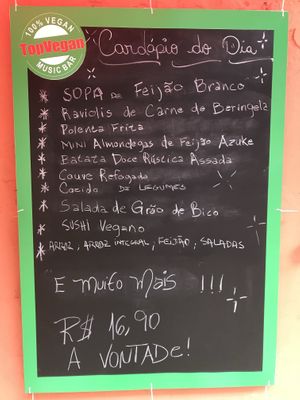 100% VEGAN
TopVegan
MUSIC BAR
Cardápio do Dia
* SOPA DE Feijão Branco
* Raviolis de Carne de Beringela
* Polenta Frita
* MINI Almondegas de Feijão Azuke
* Batata Doce Rústica Assada
* Couve Refogada
* Cosido DE LEGUMES
* Salada de Grão de Bico
* SUSHI Vegano
* ARROZ, ARROZ INTEGRAL, FEIJÃO, SALADAS
E MUITO MAIS !!!
R$ 16,90
A VONTADE!